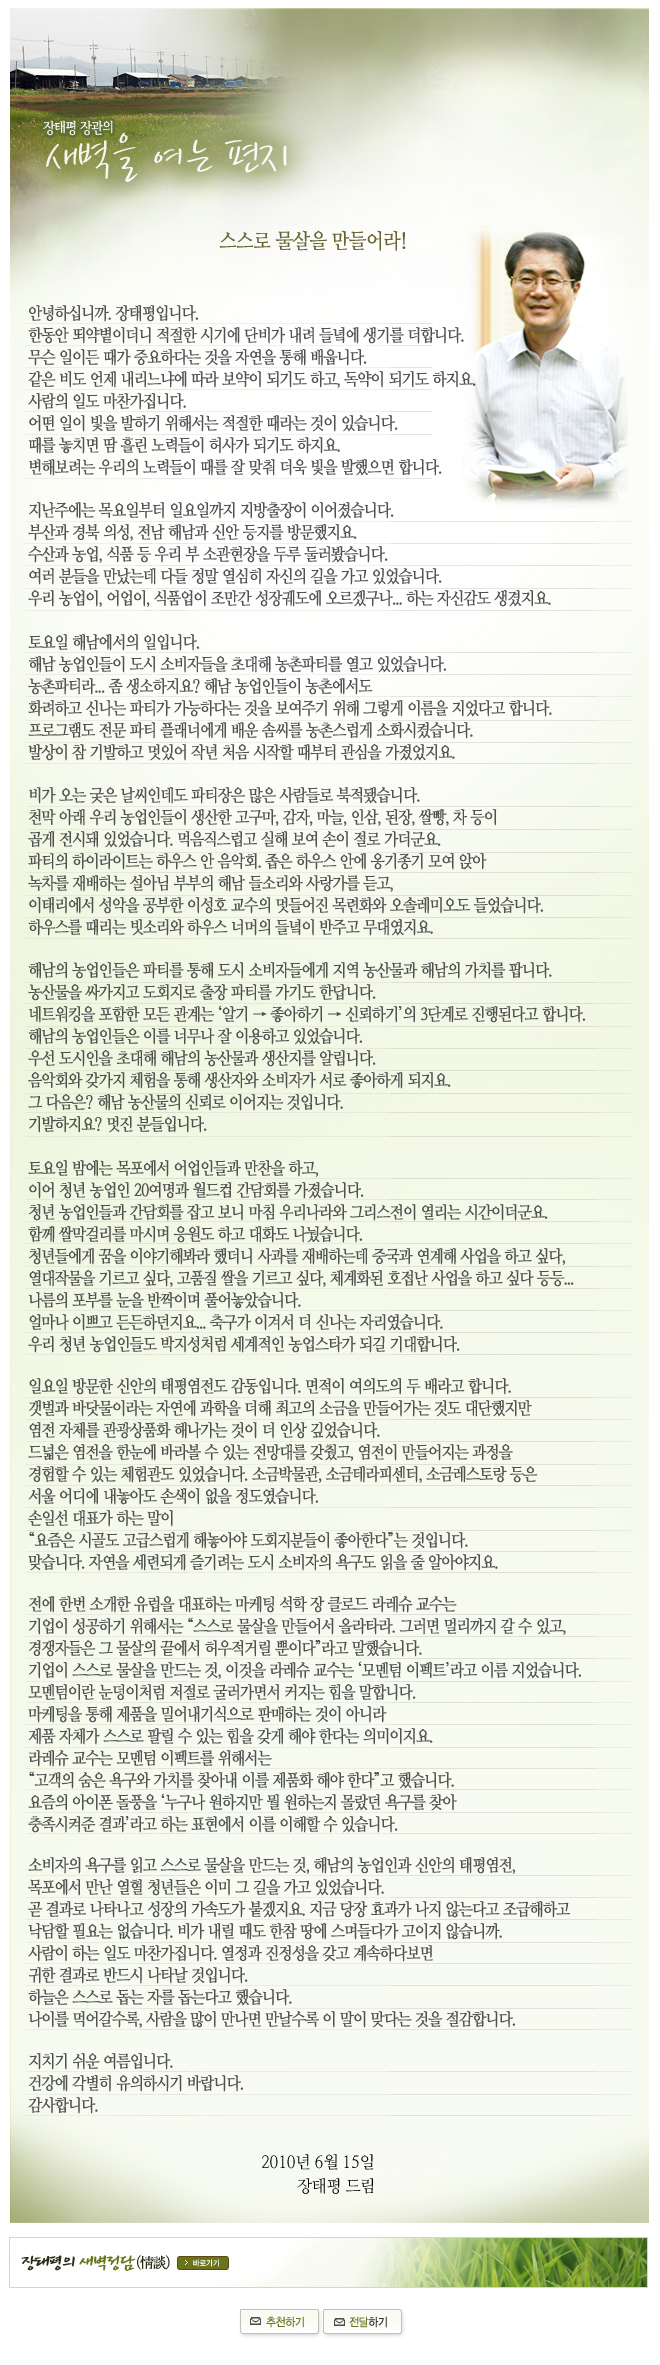 장태평 장관의
새벽을 여는 편지
스스로 물살을 만들어라!
안녕하십니까. 장태평입니다.
한동안 뙤약볕이더니 적절한 시기에 단비가 내려 들녘에 생기를 더합니다.
무슨 일이든 때가 중요하다는 것을 자연을 통해 배웁니다.
같은 비도 언제 내리느냐에 따라 보약이 되기도 하고, 독약이 되기도 하지요.
사람의 일도 마찬가집니다.
어떤 일이 빛을 발하기 위해서는 적절한 때라는 것이 있습니다.
때를 놓치면 땀 흘린 노력들이 허사가 되기도 하지요.
변해보려는 우리의 노력들이 때를 잘 맞춰 더욱 빛을 발했으면 합니다.
지난주에는 목요일부터 일요일까지 지방출장이 이어졌습니다.
부산과 경북 의성, 전남 해남과 신안 등지를 방문했지요.
수산과 농업, 식품 등 우리 부 소관현장을 두루 둘러봤습니다.
여러 분들을 만났는데 다들 정말 열심히 자신의 길을 가고 있었습니다.
우리 농업이, 어업이, 식품업이 조만간 성장궤도에 오르겠구나... 하는 자신감도 생겼지요.
토요일 해남에서의 일입니다.
해남 농업인들이 도시 소비자들을 초대해 농촌파티를 열고 있었습니다.
농촌파티라... 좀 생소하지요? 해남 농업인들이 농촌에서도
화려하고 신나는 파티가 가능하다는 것을 보여주기 위해 그렇게 이름을 지었다고 합니다.
프로그램도 전문 파티 플래너에게 배운 솜씨를 농촌스럽게 소화시켰습니다.
발상이 참 기발하고 멋있어 작년 처음 시작할 때부터 관심을 가졌었지요.
비가 오는 궂은 날씨인데도 파티장은 많은 사람들로 북적됐습니다.
천막 아래 우리 농업인들이 생산한 고구마, 감자, 마늘, 인삼, 된장, 쌀빵, 차 등이
곱게 전시돼 있었습니다. 먹음직스럽고 실해 보여 손이 절로 가더군요.
파티의 하이라이트는 하우스 안 음악회. 좁은 하우스 안에 옹기종기 모여 앉아
녹차를 재배하는 설아님 부부의 해남 들소리와 사랑가를 듣고,
이태리에서 성악을 공부한 이성호 교수의 멋들어진 목련화와 오솔레미오도 들었습니다.
하우스를 때리는 빗소리와 하우스 너머의 들녘이 반주고 무대였지요.
해남의 농업인들은 파티를 통해 도시 소비자들에게 지역 농산물과 해남의 가치를 팝니다.
농산물을 싸가지고 도회지로 출장 파티를 가기도 한답니다.
네트워킹을 포함한 모든 관계는 ‘알기 → 좋아하기 → 신뢰하기’의 3단계로 진행된다고 합니다.
해남의 농업인들은 이를 너무나 잘 이용하고 있었습니다.
우선 도시인을 초대해 해남의 농산물과 생산지를 알립니다.
음악회와 갖가지 체험을 통해 생산자와 소비자가 서로 좋아하게 되지요.
그 다음은? 해남 농산물의 신뢰로 이어지는 것입니다.
기발하지요? 멋진 분들입니다.
토요일 밤에는 목포에서 어업인들과 만찬을 하고,
이어 청년 농업인 20여명과 월드컵 간담회를 가졌습니다.
청년 농업인들과 간담회를 잡고 보니 마침 우리나라와 그리스전이 열리는 시간이더군요.
함께 쌀막걸리를 마시며 응원도 하고 대화도 나눴습니다.
청년들에게 꿈을 이야기해봐라 했더니 사과를 재배하는데 중국과 연계해 사업을 하고 싶다,
열대작물을 기르고 싶다, 고품질 쌀을 기르고 싶다, 체계화된 호접난 사업을 하고 싶다 등등...
나름의 포부를 눈을 반짝이며 풀어놓았습니다.
얼마나 이쁘고 든든하던지요... 축구가 이겨서 더 신나는 자리였습니다.
우리 청년 농업인들도 박지성처럼 세계적인 농업스타가 되길 기대합니다.
일요일 방문한 신안의 태평염전도 감동입니다. 면적이 여의도의 두 배라고 합니다.
갯벌과 바닷물이라는 자연에 과학을 더해 최고의 소금을 만들어가는 것도 대단했지만
염전 자체를 관광상품화 해나가는 것이 더 인상 깊었습니다.
드넓은 염전을 한눈에 바라볼 수 있는 전망대를 갖췄고, 염전이 만들어지는 과정을
경험할 수 있는 체험관도 있었습니다. 소금박물관, 소금테라피센터, 소금레스토랑 등은
서울 어디에 내놓아도 손색이 없을 정도였습니다.
손일선 대표가 하는 말이
“요즘은 시골도 고급스럽게 해놓아야 도회지분들이 좋아한다”는 것입니다.
맞습니다. 자연을 세련되게 즐기려는 도시 소비자의 욕구도 읽을 줄 알아야지요.
전에 한번 소개한 유럽을 대표하는 마케팅 석학 장 클로드 라레슈 교수는
기업이 성공하기 위해서는 “스스로 물살을 만들어서 올라타라. 그러면 멀리까지 갈 수 있고,
경쟁자들은 그 물살의 끝에서 허우적거릴 뿐이다”라고 말했습니다.
기업이 스스로 물살을 만드는 것, 이것을 라레슈 교수는 ‘모멘텀 이펙트’라고 이름 지었습니다.
모멘텀이란 눈덩이처럼 저절로 굴러가면서 커지는 힘을 말합니다.
마케팅을 통해 제품을 밀어내기식으로 판매하는 것이 아니라
제품 자체가 스스로 팔릴 수 있는 힘을 갖게 해야 한다는 의미이지요.
라레슈 교수는 모멘텀 이펙트를 위해서는
“고객의 숨은 욕구와 가치를 찾아내 이를 제품화 해야 한다”고 했습니다.
요즘의 아이폰 돌풍을 ‘누구나 원하지만 뭘 원하는지 몰랐던 욕구를 찾아
충족시켜준 결과’라고 하는 표현에서 이를 이해할 수 있습니다.
소비자의 욕구를 읽고 스스로 물살을 만드는 것, 해남의 농업인과 신안의 태평염전,
목포에서 만난 열혈 청년들은 이미 그 길을 가고 있었습니다.
곧 결과로 나타나고 성장의 가속도가 붙겠지요. 지금 당장 효과가 나지 않는다고 조급해하고
낙담할 필요는 없습니다. 비가 내릴 때도 한참 땅에 스며들다가 고이지 않습니까.
사람이 하는 일도 마찬가집니다. 열정과 진정성을 갖고 계속하다보면
귀한 결과로 반드시 나타날 것입니다.
하늘은 스스로 돕는 자를 돕는다고 했습니다.
나이를 먹어갈수록, 사람을 많이 만나면 만날수록 이 말이 맞다는 것을 절감합니다.
지치기 쉬운 여름입니다.
건강에 각별히 유의하시기 바랍니다.
감사합니다.
2010년 6월 15일
장태평 드림
장태평의 새벽정담(情談) 바로가기
추천하기 전달하기